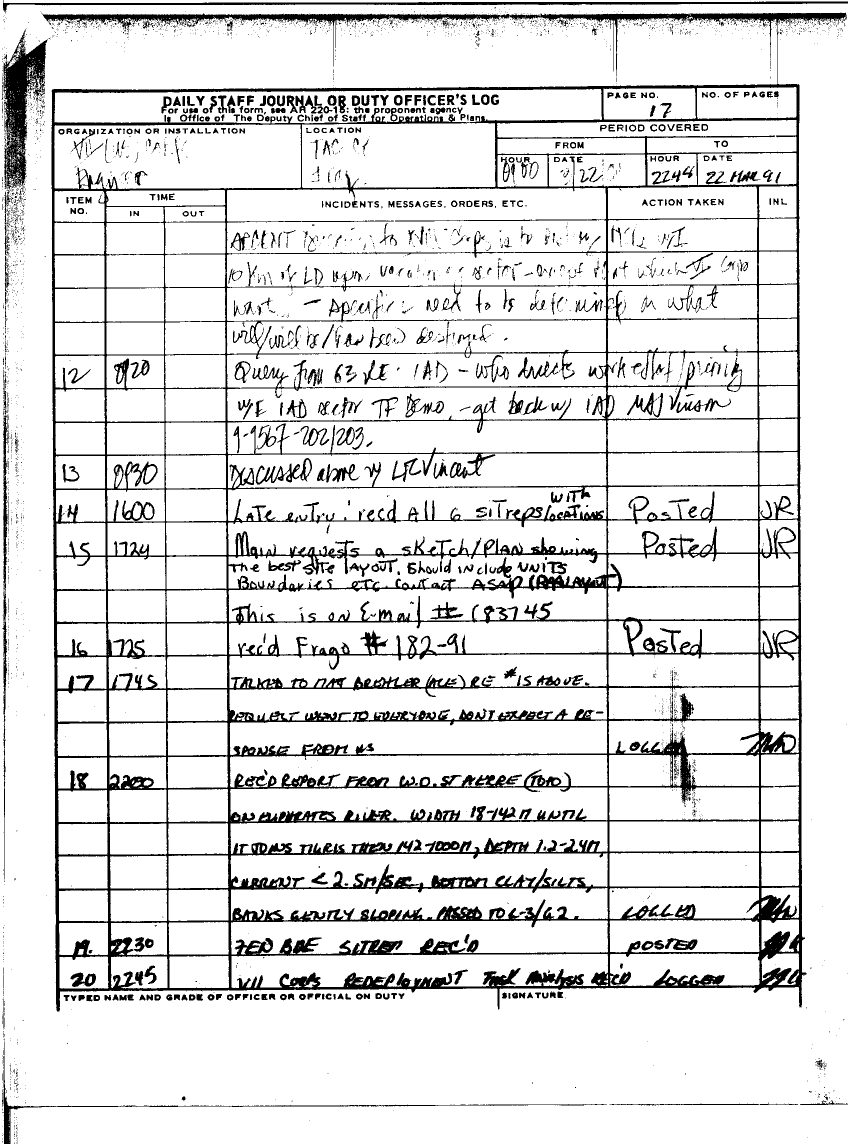 DAILY STAFF JOURNAL OR DUTY OFFICER'S LOG
For use of this form, see AR 220-15: the proponent agency
is Office of The Deputy Chief of Staff for Operations & Plans.
PAGE NO.
17
NO. OF PAGES
ORGANIZATION OR INSTALLATION
Engineer
LOCATION
TAC CP
Iraq
PERIOD COVERED
FROM
TO
HOUR
0900
DATE
22
HOUR
2248
DATE
22 MAR 91
ITEM NO.
TIME
IN
OUT
INCIDENTS, MESSAGES, ORDERS, ETC.
ACTION TAKEN
INL
ARCENT to Corps is to w/
10 Km of LD upon sector - except that which Corps
want. - specifics need to be determined on what
will/will be/has been destroyed.
12 0920 Query from 1AD - who directs work effort/priority
1AD sector TF Demo. - get back w/ 1AD MAJ Vinson
9-1567-202/203.
13 0930 Discussed above w/ LTC Vincent
14 1600 Late entry: rec'd All 6 SITREPS WITH LOCATIONS Posted JR
15 1724 Main requests a sketch/PLAN showing Posted JR
the best site LAYOUT. Should include UNITS
Boundaries etc. Contact ASAP
This is on E-mail # 183745
16 1725 rec'd Frago # 182-91 Posted JR
17 1745 TALKED TO RE #15 ABOVE.
REQUEST WENT TO EVERYONE, DON'T EXPECT A RE-
SPONSE FROM US LOGGED
18 2200 REC'D REPORT FROM W.O. ST PIERRE (TOPO)
ON EUPHRATES RIVER. WIDTH 18-142M UNTIL
IT JOINS TIGRIS THEN 142-1000M, DEPTH 1.2-2.4M,
CURRENT < 2.5M/SEC, BOTTOM CLAY/SILTS,
BANKS GENTLY SLOPING. PASSED TO G-3/G2. LOGGED
19. 2230 7EN BDE SITREP REC'D POSTED
20 2245 VII CORPS REDEPLOYMENT TASK ANALYSIS REC'D LOGGED
TYPED NAME AND GRADE OF OFFICER OR OFFICIAL ON DUTY
SIGNATURE